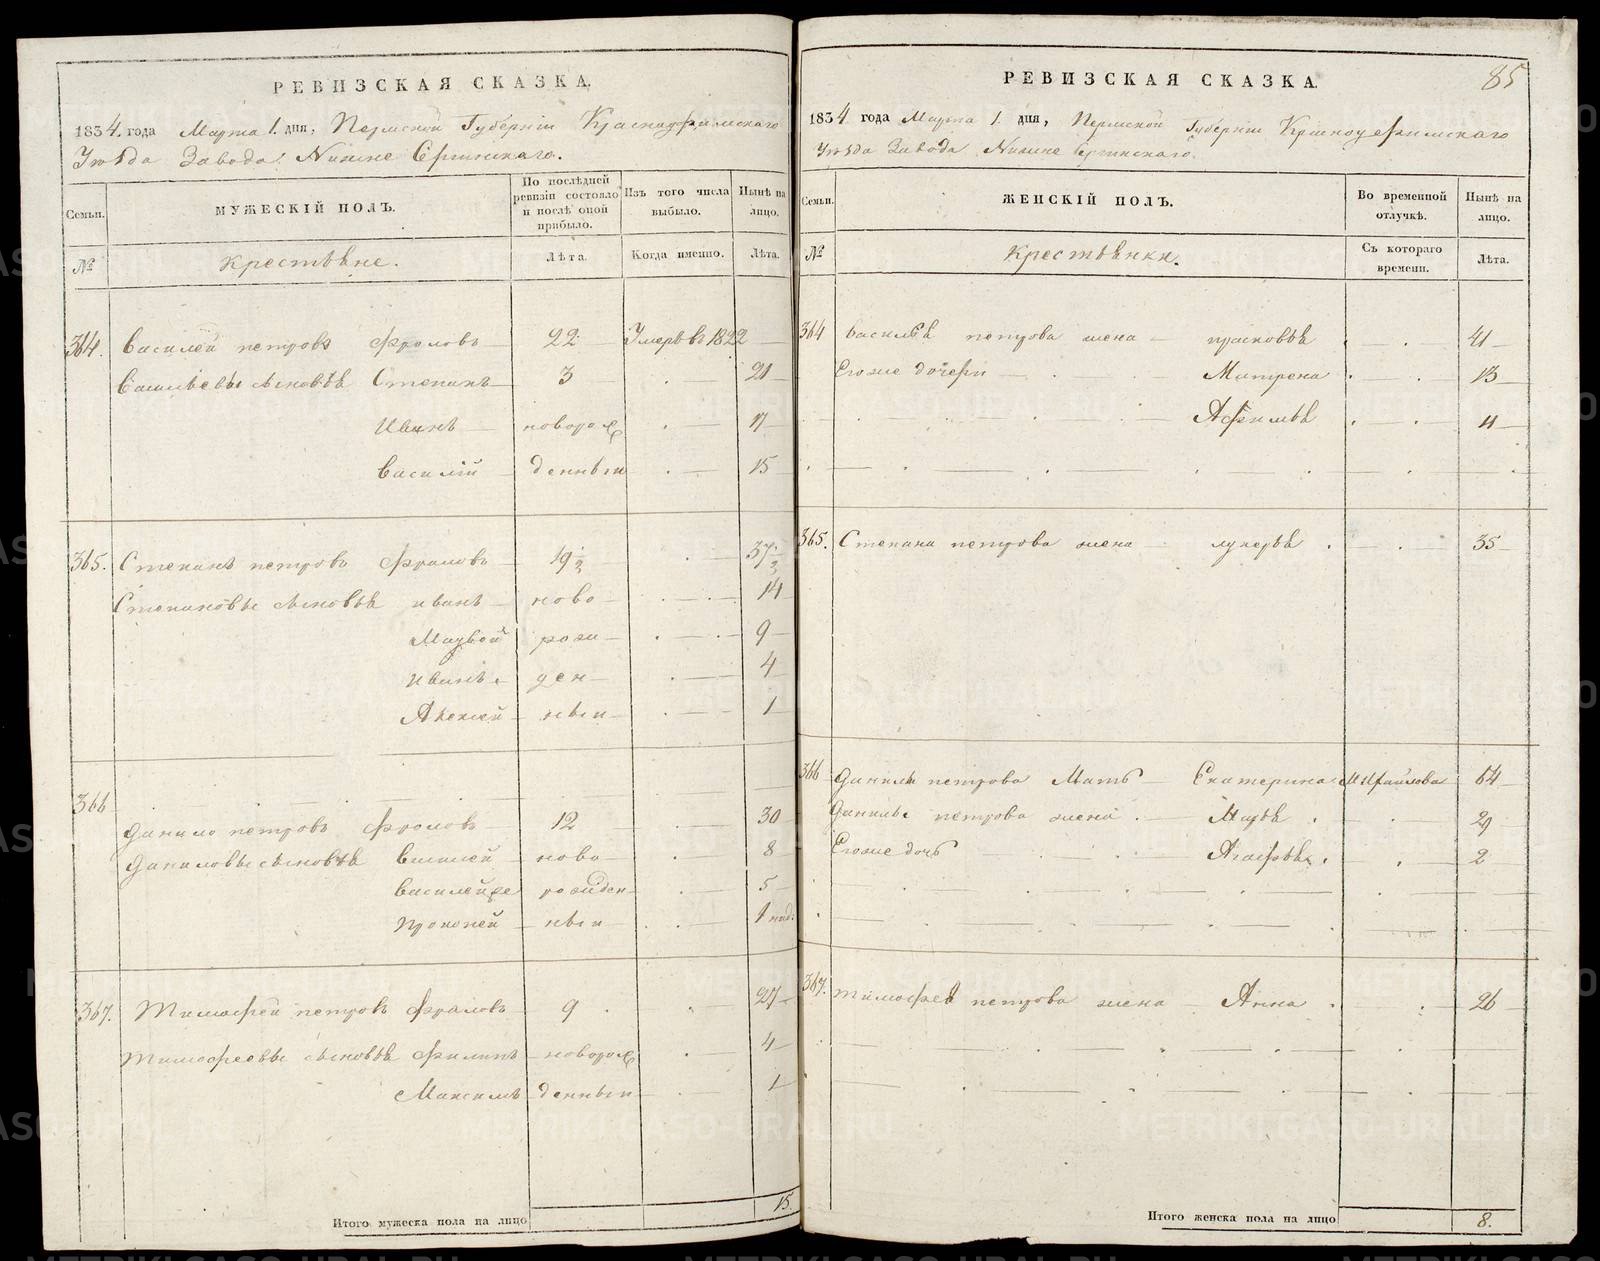 РЕВИЗСКАЯ СКАЗКА.
1834. года Марта 1. дня, Пермской Губерніи Красноуфимскаго
Уѣзда Завода Нижне Сергинскаго.
Семьи.
МУЖЕСКІЙ ПОЛЪ.
По послѣдней ревизіи состояло и послѣ оной прибыло.
Изъ того числа выбыло.
Нынѣ на лицо.
№
Крестьяне.
Лѣта.
Когда именно.
Лѣта.
364. Василей петровъ Фроловъ 22 Умеръ въ 1822
Васильевы сыновья Степанъ 3 21
Иванъ новорож 17
Василій денныи 15
365. Степанъ петровъ Фроловъ 19 1/2 37 1/2
Степановы сыновья иванъ ново 14
Матвей рож 9
Иванъ ден 4
Алексей ныи 1
366
Данило петровъ Фроловъ 12 30
Даниловы сыновья Василей ново 8
Василей же рожден 5
Прокопей ныи 1 нед.
367. Тимофей петровъ Фроловъ 9 27
Тимофеевы сыновья Филипъ новорож 4
Максимъ денныи 1
Итого мужеска пола на лицо 15.
85
РЕВИЗСКАЯ СКАЗКА.
1834 года Марта 1 дня, Пермской Губерніи Красноуфимскаго
Уѣзда Завода Нижне Сергинскаго.
Семьи.
ЖЕНСКІЙ ПОЛЪ.
Во временной отлучкѣ.
Нынѣ на лицо.
№
Крестьянки.
Съ котораго времени.
Лѣта.
364 Василья петрова жена прасковья 41
Егоже дочери Матрена 13
Афимья 11
365. Степана петрова жена лукерья 35
366 Данила петрова Мать Екатерина Михайлова 64
Данилы петрова жена Марья 29
Егоже дочь Агафья 2
367. Тимофея петрова жена Анна 26
Итого женска пола на лицо 8.
METRIKI.GASO-URAL.RU